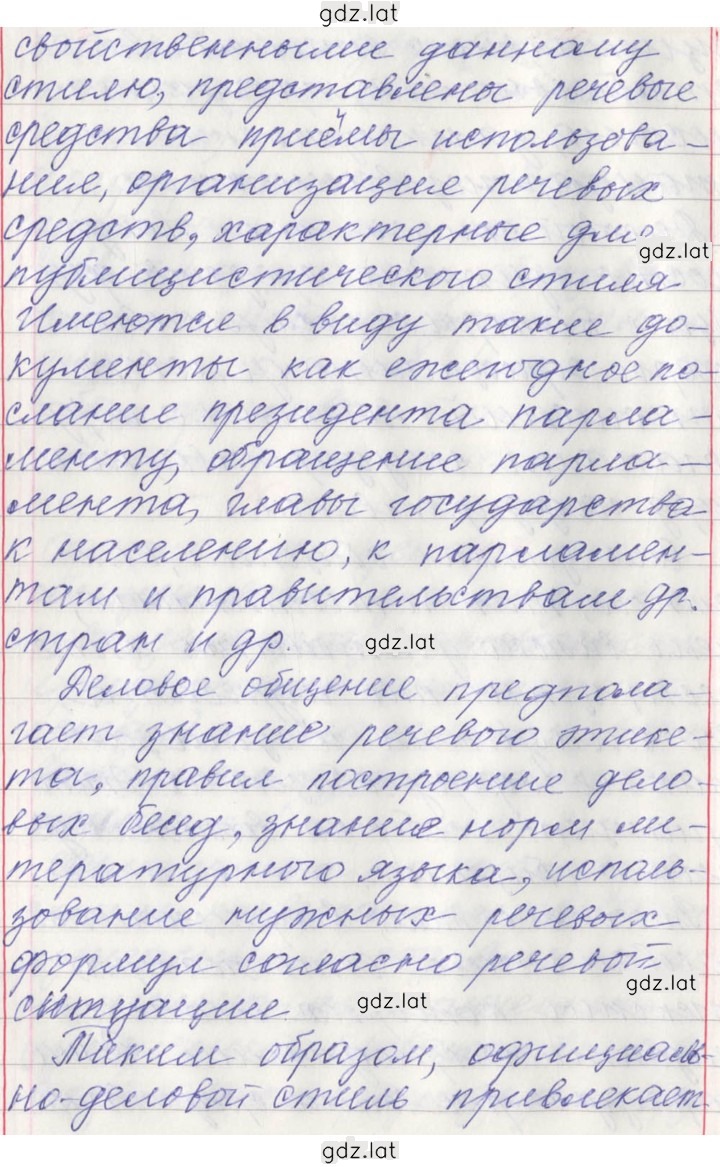 gdz.lat
свойственными данному
стилю, представлены речевые
средства приёмы использова-
ния, организация речевых
средств, характерные для
gdz.lat
публицистического стиля
Имеются в виду такие до-
кументы как ежегодное по-
слание президента парла-
менту, обращение парла-
мента, главы государства
к населению, к парламен-
там и правительствам др.
стран и др.
gdz.lat
Деловое общение предпола-
гает знание речевого этике-
та, правил построение дело-
вых бесед, знания норм ли-
тературного языка, исполь-
зование нужных речевых
формул согласно речевой
gdz.lat
ситуации
gdz.lat
Таким образом, официаль-
но-деловой стиль привлекает
gdz.lat